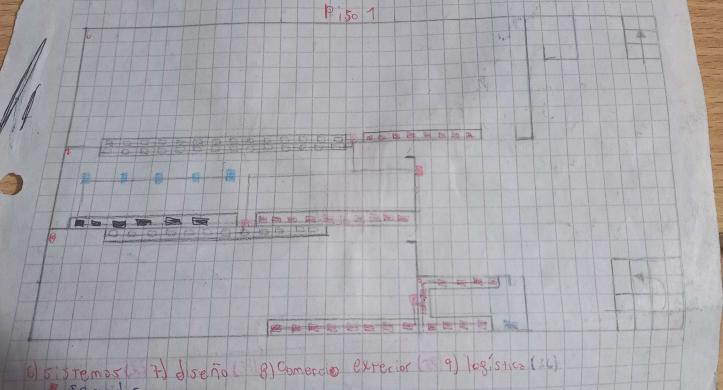 Piso 1
6) Sistemas ( 7) diseño 8) Comercio exrecior ( 9) logística (16)